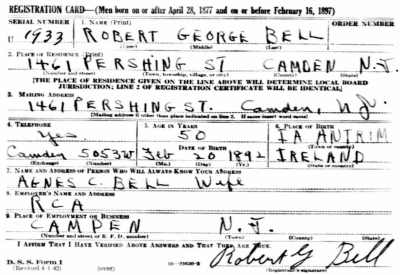 REGISTRATION CARD—(Men born on or after April 28, 1877 and on or before February 16, 1897)
SERIAL NUMBER 1. NAME (Print) ORDER NUMBER
U 1933 ROBERT GEORGE BELL
(First) (Middle) (Last)
2. PLACE OF RESIDENCE (Print)
1461 PERSHING ST CAMDEN N.J.
(Number and street) (Town, township, village, or city) (County) (State)
[THE PLACE OF RESIDENCE GIVEN ON THE LINE ABOVE WILL DETERMINE LOCAL BOARD
JURISDICTION; LINE 2 OF REGISTRATION CERTIFICATE WILL BE IDENTICAL]
3. MAILING ADDRESS
1461 PERSHING ST. Camden, N.J.
[Mailing address if other than place indicated on line 2. If same insert word same]
4. TELEPHONE 5. AGE IN YEARS 6. PLACE OF BIRTH
Yes 50 ANTRIM
DATE OF BIRTH (Town or county)
Camden 5053W Feb 20 1892 IRELAND
(Exchange) (Number) (Mo.) (Day) (Yr.) (State or country)
7. NAME AND ADDRESS OF PERSON WHO WILL ALWAYS KNOW YOUR ADDRESS
AGNES C. BELL Wife
8. EMPLOYER'S NAME AND ADDRESS
RCA
9. PLACE OF EMPLOYMENT OR BUSINESS
CAMDEN N.J.
(Number and street or R. F. D. number) (Town) (County) (State)
I AFFIRM THAT I HAVE VERIFIED ABOVE ANSWERS AND THAT THEY ARE TRUE.
D. S. S. Form 1
(Revised 4-1-42) (over) Robert G Bell
(Registrant's signature)